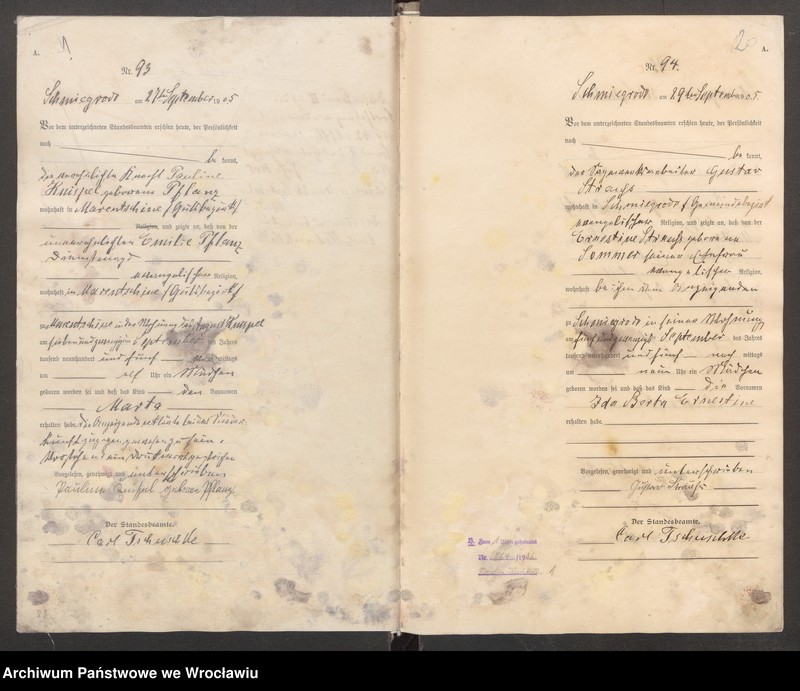 A.
1
Nr. 93
Schmiegrode am 27ten September 1905
Vor dem unterzeichneten Standesbeamten erschien heute, der Persönlichkeit
nach
be kannt,
die verehelichte Knecht Pauline
Knispel geborene Pflanz
wohnhaft in Marentschine /Gutsbezirk/
Religion, und zeigte an, daß von der
unverehelichten Emilie Pflanz
Dienstmagd
evangelischer Religion,
wohnhaft in Marentschine /Gutsbezirk/
zu Marentschine in der Wohnung des August Knispel
am siebenundzwanzigsten September des Jahres
tausend neunhundert und fünf vormittags
um elf Uhr ein Mädchen
geboren worden sei und daß das Kind den Vornamen
Marta
erhalten habe. Die Anzeigende erklärte bei der Nieder-
kunft zugegen gewesen zu sein.
Vorstehend ein Druckwort gestrichen
Vorgelesen, genehmigt und unterschrieben
Pauline Knispel geborene Pflanz
Der Standesbeamte.
Carl Tschuschke
2
A.
Nr. 94.
Schmiegrode am 29ten September 1905.
Vor dem unterzeichneten Standesbeamten erschien heute, der Persönlichkeit
nach
be kannt,
der Sägewerksarbeiter Gustav
Strauhs
wohnhaft in Schmiegrode /Gemeindebezirk
evangelischer Religion, und zeigte an, daß von der
Ernestine Strauhs geborene
Sommer seiner Ehefrau
evangelischer Religion,
wohnhaft bei ihm dem Anzeigenden
zu Schmiegrode in seiner Wohnung
am fünfundzwanzigsten September des Jahres
tausend neunhundert und fünf nach mittags
um neun Uhr ein Mädchen
geboren worden sei und daß das Kind die Vornamen
Ida Berta Ernestine
erhalten habe.
Vorgelesen, genehmigt und unterschrieben
Gustav Strauhs
Der Standesbeamte.
Carl Tschuschke
Nr.
Archiwum Państwowe we Wrocławiu